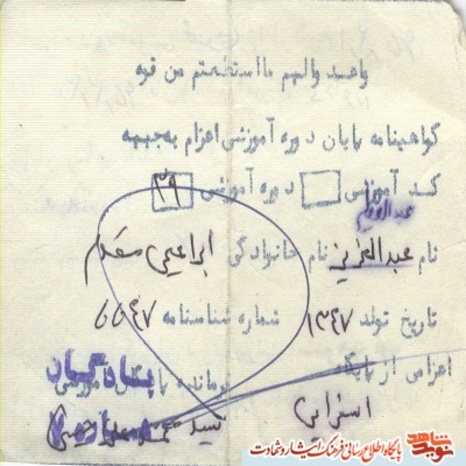 واعدوا لهم ما استطعتم من قوه
گواهینامه پایان دوره آموزشی اعزام به جبهه
کد آموزشی دوره آموزشی ۲۹
عبدالعظیم
نام عبدالعزیز نام خانوادگی ابراهیمی مقدم
تاریخ تولد ۱۳۴۷ شماره شناسنامه ۶۶۴۷
اعزامی از پایگاه فرمانده پادگان آموزشی
پادگان
اسفراین سید
نوید شاهد
پایگاه اطلاع رسانی فرهنگ ایثار و شهادت